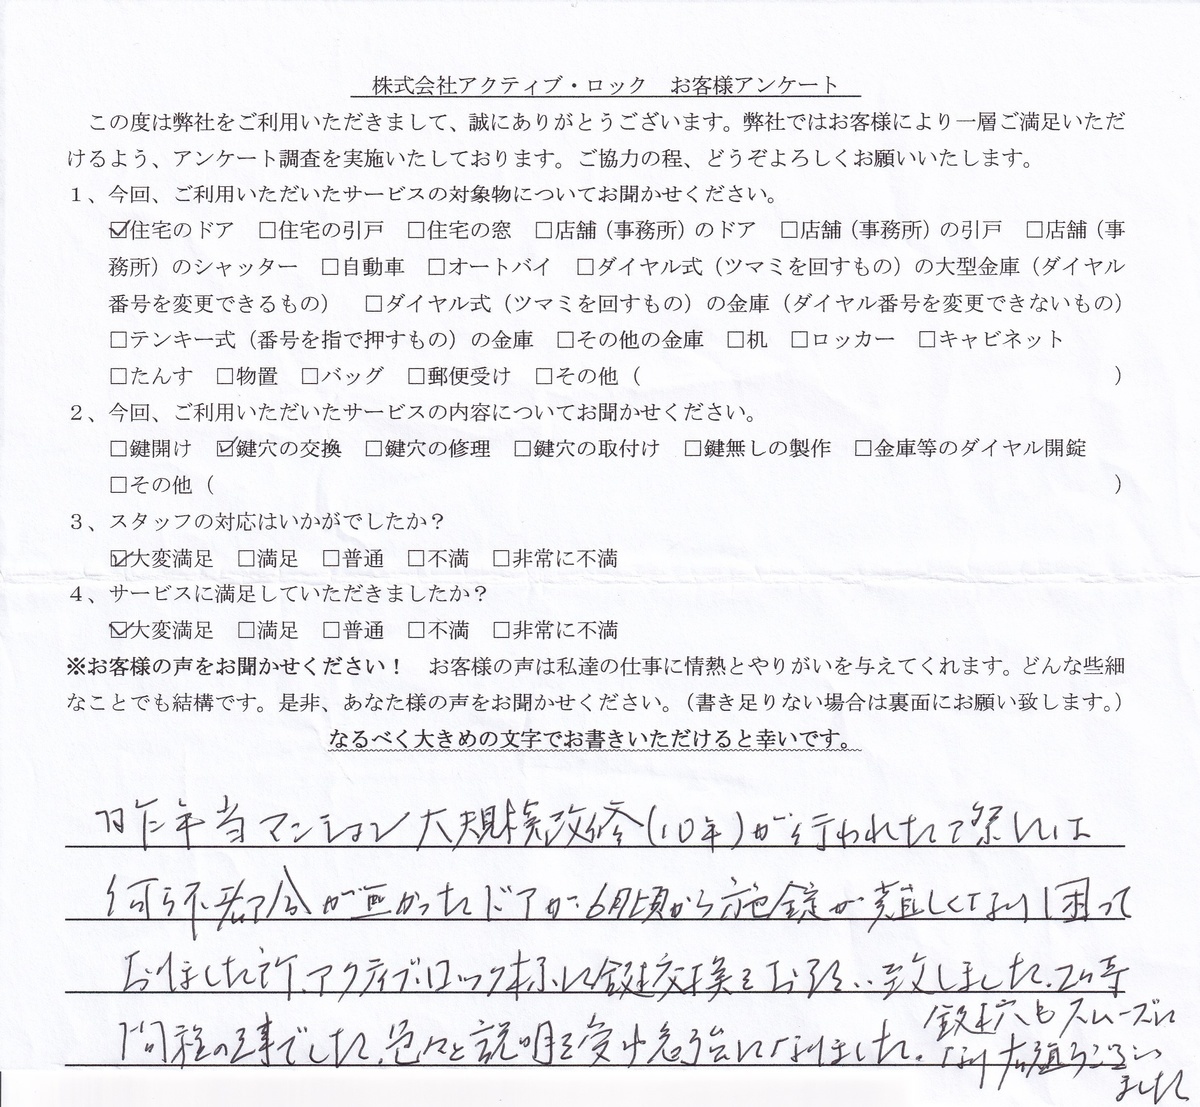 株式会社アクティブ・ロック　お客様アンケート
この度は弊社をご利用いただきまして、誠にありがとうございます。弊社ではお客様により一層ご満足いただ
けるよう、アンケート調査を実施いたしております。ご協力の程、どうぞよろしくお願いいたします。
1、今回、ご利用いただいたサービスの対象物についてお聞かせください。
☑住宅のドア　□住宅の引戸　□住宅の窓　□店舗（事務所）のドア　□店舗（事務所）の引戸　□店舗（事
務所）のシャッター　□自動車　□オートバイ　□ダイヤル式（ツマミを回すもの）の大型金庫（ダイヤル
番号を変更できるもの）　□ダイヤル式（ツマミを回すもの）の金庫（ダイヤル番号を変更できないもの）
□テンキー式（番号を指で押すもの）の金庫　□その他の金庫　□机　□ロッカー　□キャビネット
□たんす　□物置　□バッグ　□郵便受け　□その他（　　　）
2、今回、ご利用いただいたサービスの内容についてお聞かせください。
□鍵開け　☑鍵穴の交換　□鍵穴の修理　□鍵穴の取付け　□鍵無しの製作　□金庫等のダイヤル開錠
□その他（　　　）
3、スタッフの対応はいかがでしたか？
☑大変満足　□満足　□普通　□不満　□非常に不満
4、サービスに満足していただきましたか？
☑大変満足　□満足　□普通　□不満　□非常に不満
※お客様の声をお聞かせください！　お客様の声は私達の仕事に情熱とやりがいを与えてくれます。どんな些細
なことでも結構です。是非、あなた様の声をお聞かせください。（書き足りない場合は裏面にお願い致します。）
なるべく大きめの文字でお書きいただけると幸いです。
昨年当マンション大規模改修(10年)が行われた際には
何ら不都合が無かったドアが、6月頃から施錠が難しくなり困って
おりました所、アクティブ・ロック様に鍵交換をお願い致しました。2時
間程の事でした。色々と説明を受け勉強になりました。
鍵穴もスムーズに
なり有難うござい
ました